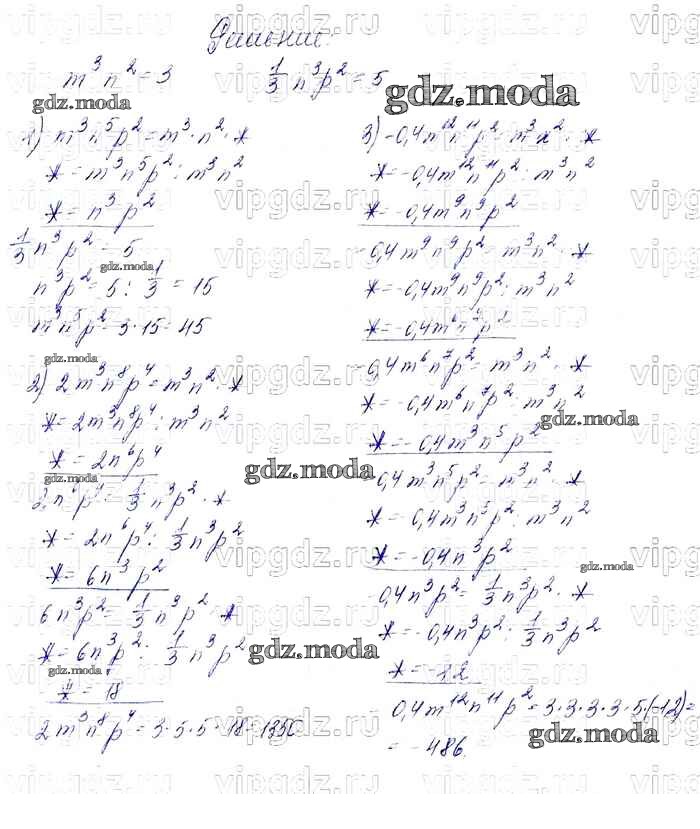 Решение.
m³n² = 3
1/3 n³p² = 5
1) m³n⁵p² = m³·n²·*
* = m³n⁵p² : m³n²
* = n³p²
1/3 n³p² = 5
n³p² = 5 : 1/3 = 15
m³n⁵p² = 3·15 = 45
2) 2m³n⁸p⁴ = m³n²·*
* = 2m³n⁸p⁴ : m³n²
* = 2n⁶p⁴
2n⁶p⁴ = 1/3 n³p²·*
* = 2n⁶p⁴ : 1/3 n³p²
* = 6n³p²
6n³p² = 1/3 n³p²·*
* = 6n³p² : 1/3 n³p²
* = 18
2m³n⁸p⁴ = 3·5·5·18 = 1350
3) -0,4m¹²n¹¹p² = m³n²·*
* = -0,4m¹²n¹¹p² : m³n²
* = -0,4m⁹n⁹p²
-0,4m⁹n⁹p² = m³n²·*
* = -0,4m⁹n⁹p² : m³n²
* = -0,4m⁶n⁷p²
-0,4m⁶n⁷p² = m³n²·*
* = -0,4m⁶n⁷p² : m³n²
* = -0,4m³n⁵p²
-0,4m³n⁵p² = m³n²·*
* = -0,4m³n⁵p² : m³n²
* = -0,4n³p²
-0,4n³p² = 1/3 n³p²·*
* = -0,4n³p² : 1/3 n³p²
* = -1,2
0,4m¹²n¹¹p² = 3·3·3·3·5·(-1,2) =
= -486.
gdz.moda
vipgdz.ru